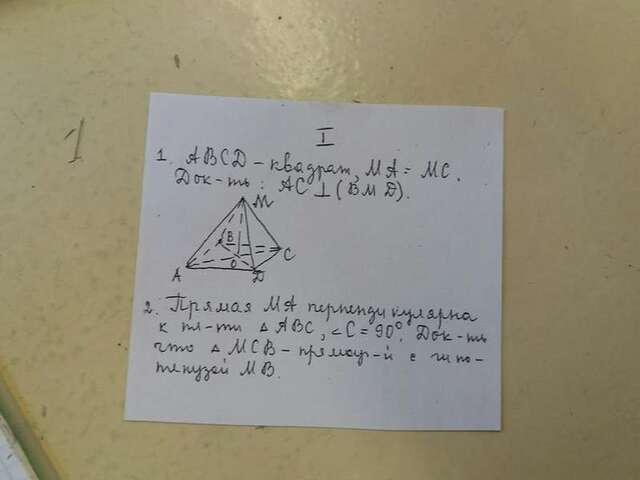 I
1. ABCD – квадрат, MA = MC.
Док-ть: AC ⊥ (BMD).
M
B
C
A
O
D
2. Прямая MA перпендикулярна
к пл-ти △ ABC, ∠C = 90°. Док-ть
что △ MCB – прямоуг-й с гипо-
тенузой MB.